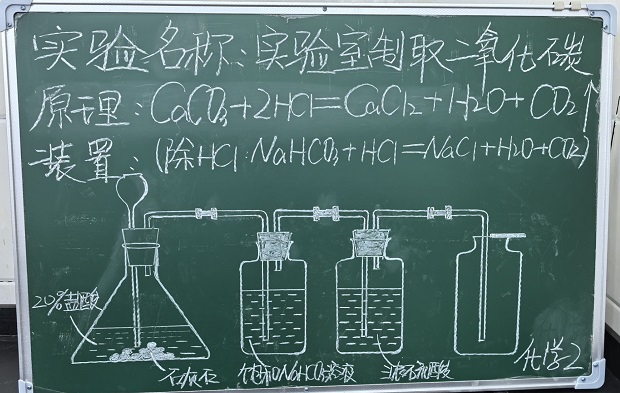 实验名称：实验室制取二氧化碳
原理：CaCO3+2HCl=CaCl2+H2O+CO2↑
装置：(除HCl:NaHCO3+HCl=NaCl+H2O+CO2)
20%盐酸
石灰石
饱和NaHCO3溶液
浓硫酸
化学2